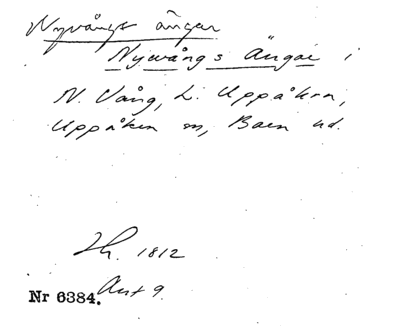 Nyvångs ängar
Nyvångs Ängar i
N. Vång, L. Uppåkra,
Uppåkra sn, Bara hd.
Lh. 1812
Akt 9.
Nr 6384.